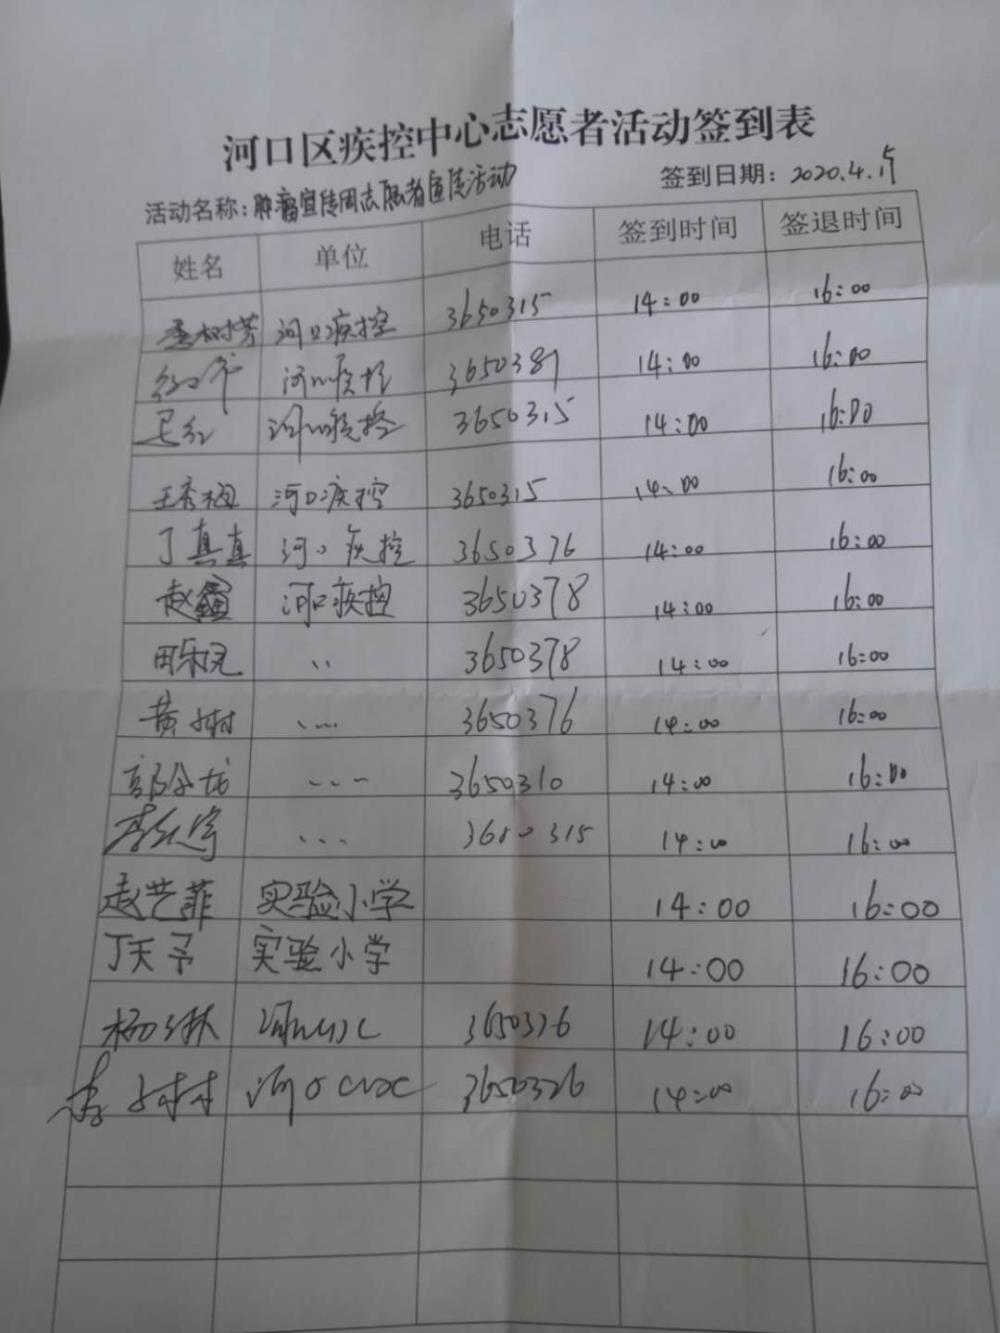 河口区疾控中心志愿者活动签到表
活动名称：肿瘤宣传周志愿者宣传活动 签到日期：2020.4.15
姓名 单位 电话 签到时间 签退时间
河口疾控 3650315 14:00 16:00
河口疾控 3650381 14:00 16:00
河口疾控 3650315 14:00 16:00
王秀梅 河口疾控 3650315 14:00 16:00
丁真真 河口疾控 3650376 14:00 16:00
赵鑫 河口疾控 3650378 14:00 16:00
3650378 14:00 16:00
黄 3650376 14:00 16:00
郭 3650310 14:00 16:00
李 3650315 14:00 16:00
赵艺菲 实验小学 14:00 16:00
丁天予 实验小学 14:00 16:00
杨 3650376 14:00 16:00
李 河口CDC 3650326 14:00 16:00